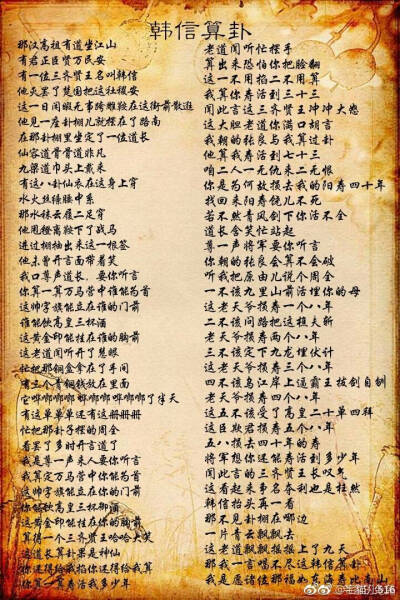 韩信算卦
那汉高祖有道坐江山
有君正臣贤万民安
有一位三齐贤王名叫韩信
他灭罢了楚国把这社稷安
这一日闲暇无事跨雕鞍在这街前散逛
他见一座卦棚儿就摆在了路南
在那卦棚里坐定了一位道长
仙容道骨道非凡
九梁道巾头上戴来
有这八卦仙衣在这身上穿
水火丝绦腰中系
那水袜云履二足穿
他甩镫离鞍下了战马
进过棚抽出来这一根签
他未曾开言面带着笑
我口尊声道长,要你听言
你算一算万马营中谁能为首
这帅字旗能立在谁的门前
谁能饮高皇三杯酒
这黄金印能挂在谁的胸前
这老道闻听开了慧眼
忙把那铜盒拿在了手间
有三个青铜钱放在里面
它哗啷啷啷哗啷啷哗啷啷了半天
有这单单单还有这册册册
忙把那卦子摆的周全
看罢了多时开言道了
我是尊一声来人要你听言
我算定万马营中你能为首
这帅字旗能立在你的门前
你能饮高皇三杯御酒
这黄金印能挂在你的胸前
算得一个三齐贤王哈哈大笑
这道长算卦果是神仙
你还得给我掐你还得给我算
你算一算寿活我多少年
老道闻听忙摆手
算出来恐怕你把脸翻
这一不用掐二不用算
我算你寿活到三十三
闻此言这三齐贤王冲冲大怒
这大胆老道你满口胡言
我朝的张良与我算过卦
他算我寿活到七十三
咱二人一无仇来二无恨
你是为何故损去我的阳寿四十年
找回来阳寿饶儿不死
若不然青风剑下你活不全
道长含笑忙站起
尊一声将军要你听言
你朝的张良会算不会破
听我把原由儿说个周全
一不该九里山前活埋你的母
老天爷损寿一个八年
二不该问路把这樵夫斩
老天爷损寿两个八年
三不该定下九龙埋伏计
老天爷损寿这三个八年
四不该乌江岸上逼霸王拔剑自刎
老天爷损寿四个八年
这五不该受了高皇二十单四拜
这臣欺君损寿五个八年
五八损去四十年的寿
将军想你还能寿活到多少年
闻此言的三齐贤王长叹气
这看起来事名夺利也是枉然
韩信抬头再一看
那不见卦棚在哪边
一片青云飘飘去
这老道飘飘摇摇上了九天
那我一言唱不尽这韩信算卦
我是愿诸位那福如东海寿比南山